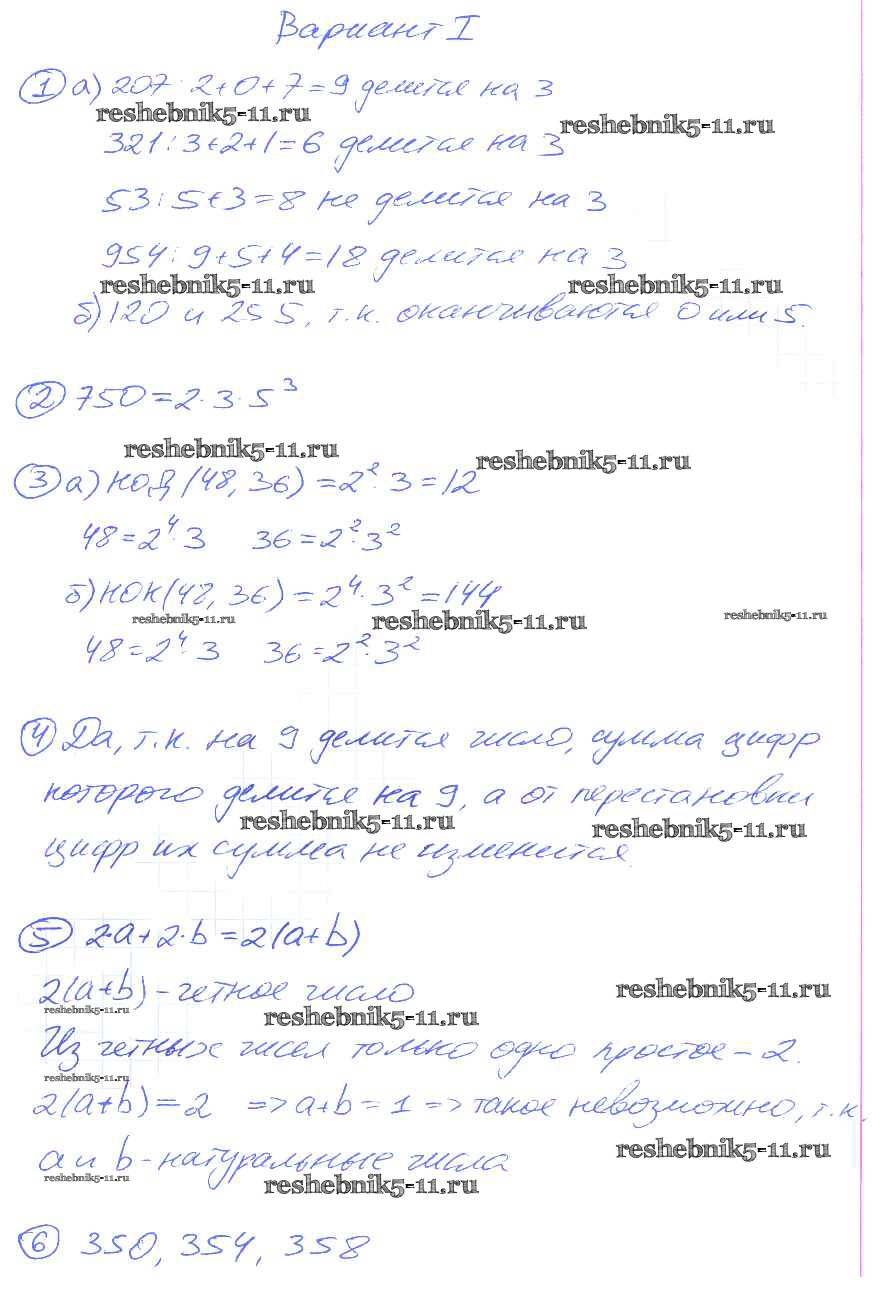 Вариант I
① а) 207: 2+0+7=9 делится на 3
reshebnik5-11.ru
reshebnik5-11.ru
321: 3+2+1=6 делится на 3
53: 5+3=8 не делится на 3
954: 9+5+4=18 делится на 3
reshebnik5-11.ru
reshebnik5-11.ru
б) 120 и 255, т.к. оканчиваются 0 или 5.
② 750=2·3·5³
reshebnik5-11.ru
reshebnik5-11.ru
③ а) НОД (48, 36) =2²·3=12
48=2⁴·3 36=2²·3²
б) НОК(48, 36) =2⁴·3²=144
reshebnik5-11.ru
reshebnik5-11.ru
reshebnik5-11.ru
48=2⁴·3 36=2²·3²
④ Да, т.к. на 9 делится число, сумма цифр
которого делится на 9, а от перестановки
reshebnik5-11.ru
reshebnik5-11.ru
цифр их сумма не изменится.
⑤ 2·a+2·b=2(a+b)
2(a+b) - четное число
reshebnik5-11.ru
reshebnik5-11.ru
reshebnik5-11.ru
Из четных чисел только одно простое – 2.
reshebnik5-11.ru
2(a+b)=2 => a+b=1 => такое невозможно, т.к.
reshebnik5-11.ru
a и b - натуральные числа
reshebnik5-11.ru
reshebnik5-11.ru
⑥ 350, 354, 358